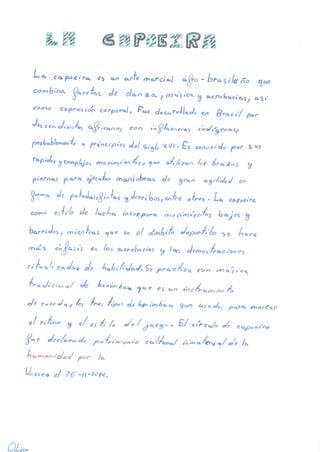 LA CAPOEIRA
La capoeira es un arte marcial afro-brasileño que
combina facetas de danza, música y acrobacias, así
como expresión corporal. Fue desarollado en Brasil por
descendientes africanos con influencias indígenas,
probablemente a principios del siglo XVI. Es conocido por sus
rapidos y complejos movimientos, que utilizan los brazos y
piernas para ejecutar maniobras de gran agilidad en
forma de patadas, fintas y derribos, entre otros. La capoeira
como estilo de lucha incorpora movimientos bajos y
barridos, mientras que en el ámbito deportibo se hace
más énfasis en las acrobacias y las demostraciones
ritualizadas de habilidad. Se practica con música
tradicional de berimbau que es un instrumento
de cuerda, los tres tipos de berimbau son usados para marcar
el ritmo y el estilo del juego. El círculo de capoeira
fue declarado patrimonio cultural inmaterial de la
humanidad por la
Unesco el 26-11-2014.
Oliver